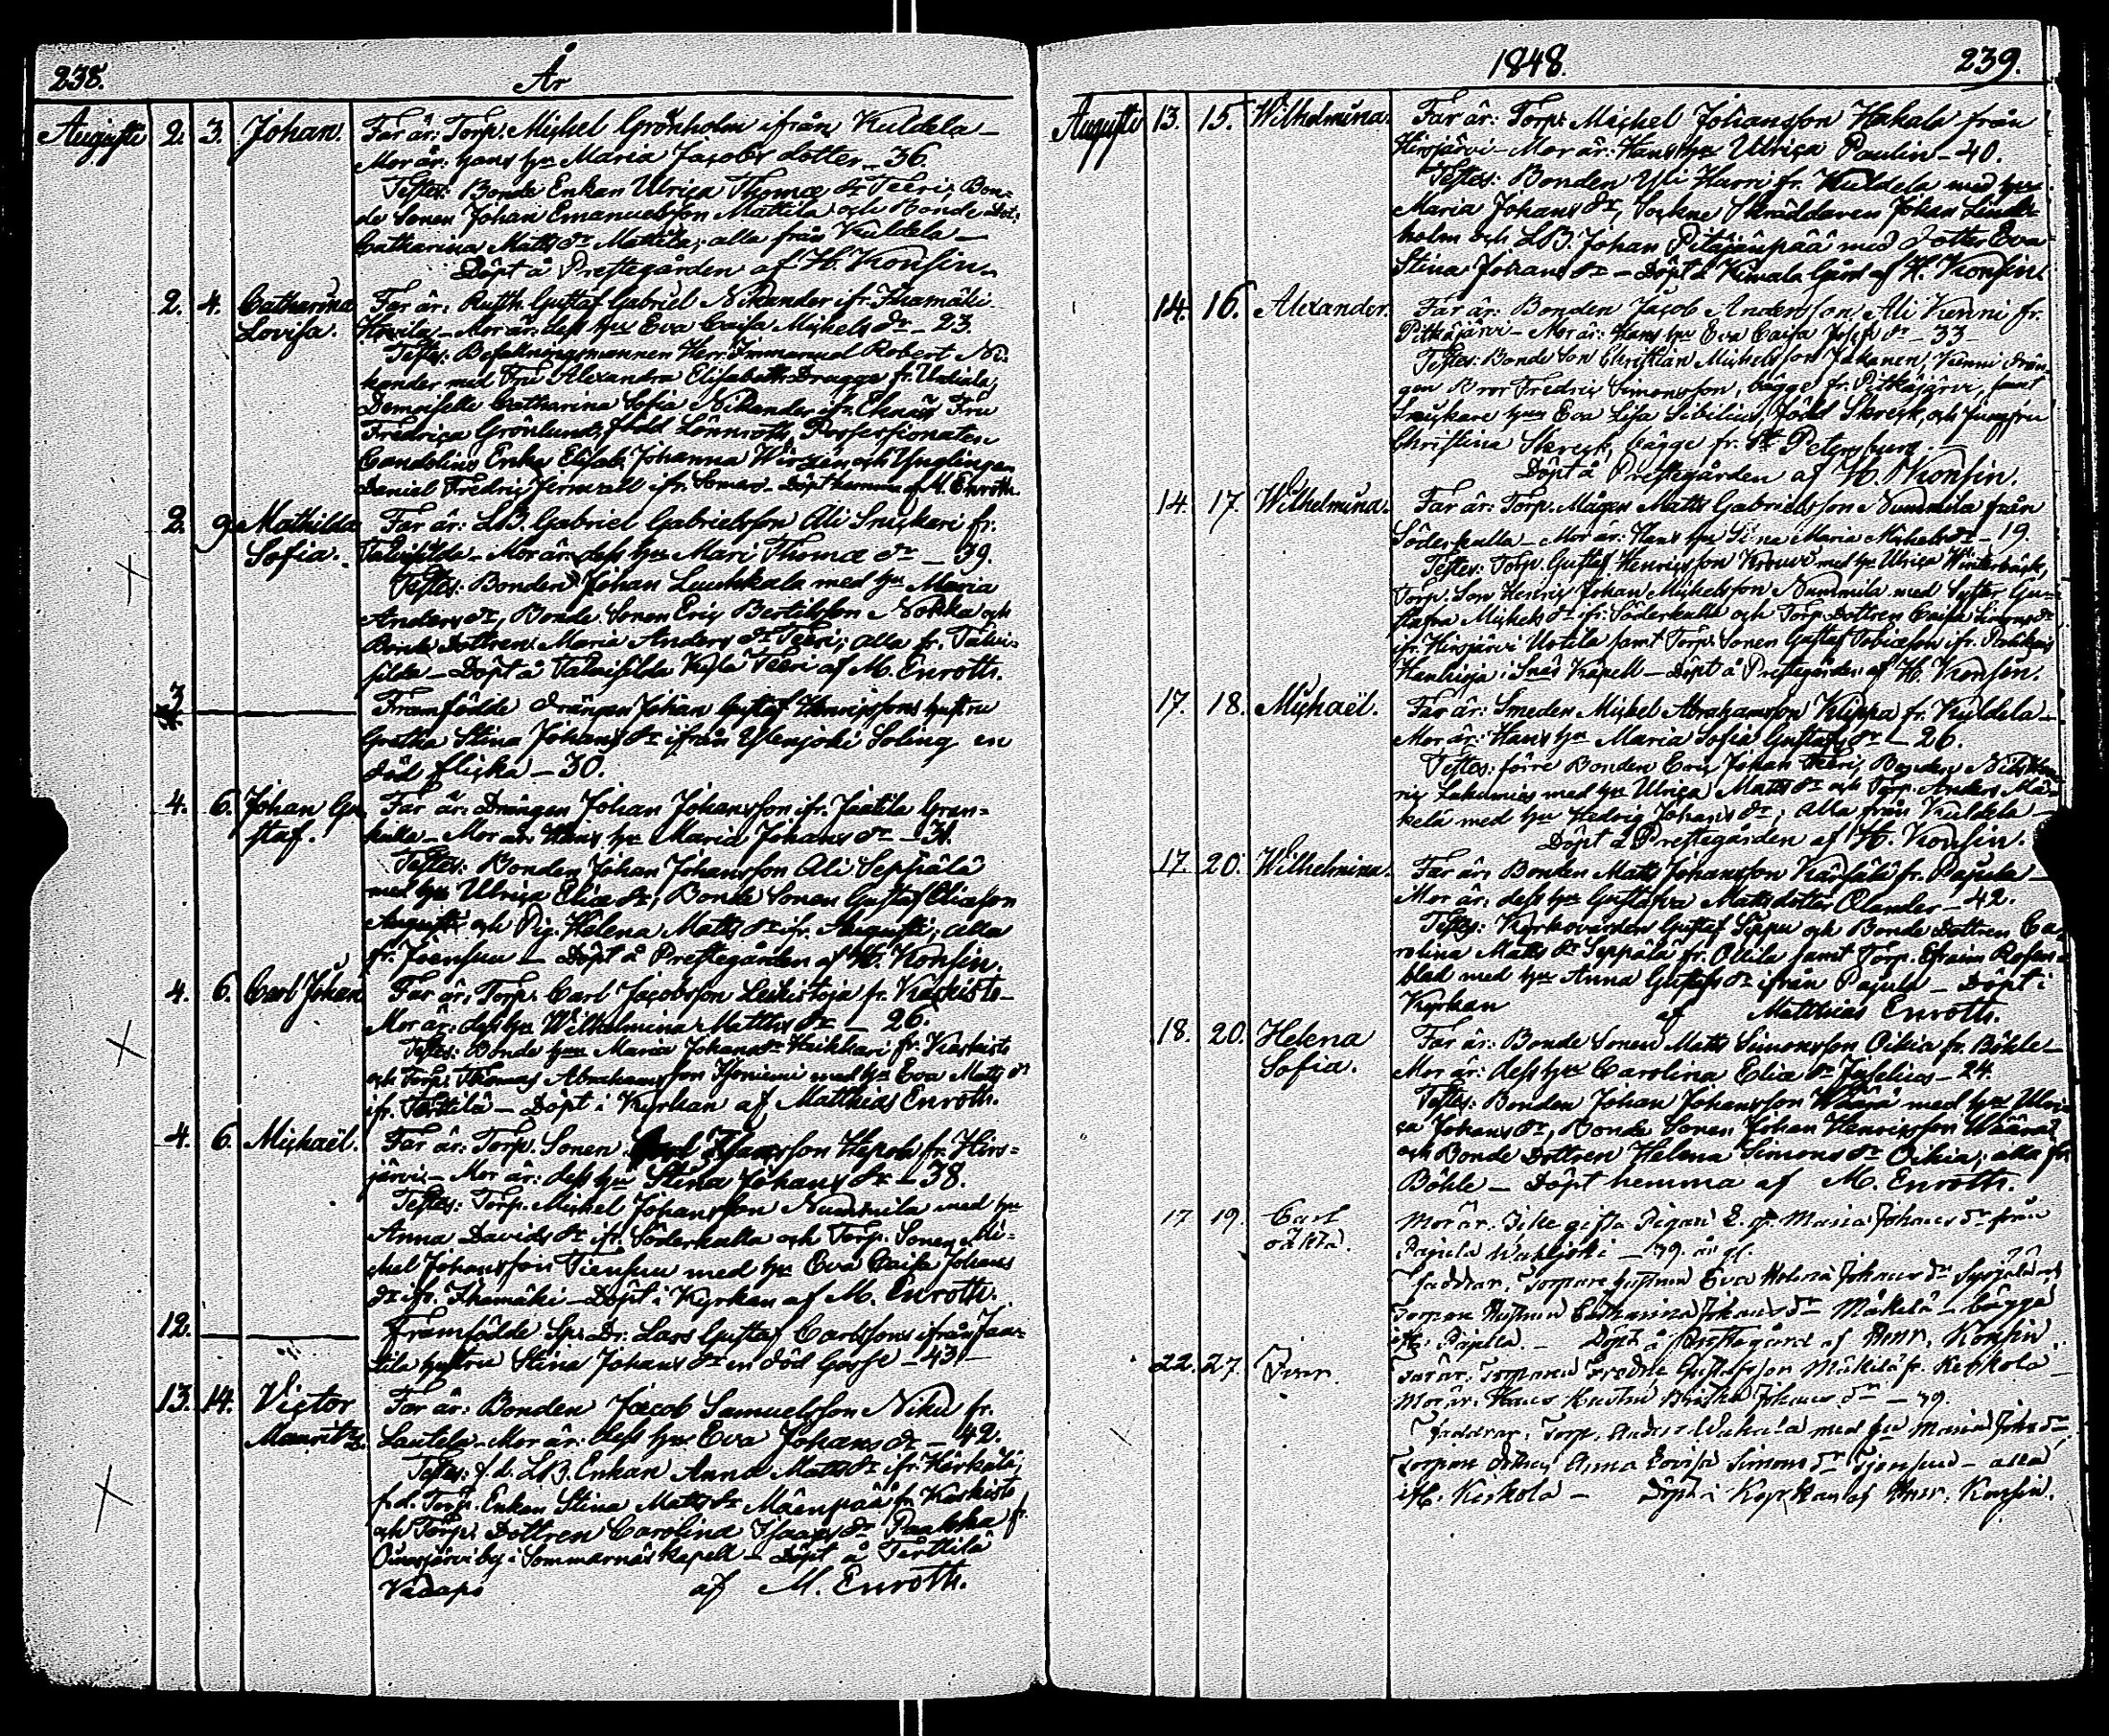 238.
År
Augusti 2. 3. Johan. Far är: Torp. Michel Grönholm ifrån Kuldela –
Mor är: hans hu Maria Jacobs dotter – 36.
Testes: Bonde Enkan Ulrica Thomæ dr Teeri, Bon-
de Sonen Johan Emanuelsson Mattila och Bonde Dot.
Catharina Matts dr Mattila; alla från Kuldela –
Döpt å Prestegården af H. Konsin.
2. 4. Catharina Far är: Gustaf Gabriel Nikander ifr. Ihamäki
Lovisa. – Mor är: dess hu Eva Caisa Michels dr – 23.
Testes: Befallningsmannen Herr Immanuel Robert Ni-
kander med Fru Alexandra Elisabeth Dragge fr. Urdiala,
Demoiselle Catharina Sofia Nikander ifr. Fru
Fredrica Grönlund, född Lönnroth, Possessionaten
Candolins Enka Elisab. Johanna Wirzén, och Ynglingen
Daniel Fredric ifr. Somero – Döpt hemma af M. Enroth.
2. Mathilda Far är: LB. Gabriel Gabrielsson Ali Snickari fr.
Sofia. – Mor är: dess hu Mari Thomæ dr – 39.
Testes: Bonden Johan Luukkala med hu Maria
Anders dr, Bonde Sonen Eric Bertilsson Nokka och
Bonde Dottren Maria Anders dr Teeri; alla fr. Talvi-
silda – Döpt å Talvisilda Teeri af M. Enroth.
3 Framfödde drängen Johan Gustaf Henricssons hustru
Gretha Stina Johans dr ifrån Ylenjoki Soling en
död flicka – 30.
4. 6. Johan Gu Far är: Drängen Johan Johansson ifr. Jaatila Gran-
staf. kulla – Mor är: Hans hu Maria Johans dr – 31.
Testes: Bonden Johan Johansson Ali Seppälä
med hu Ulrica Eliæ dr, Bonde Sonen Gustaf Eliæson
Augusti och Pig. Helena Matts dr ifr. Augusti; alla
fr. Joensuu – Döpt å Prestegården af H. Konsin.
4. 6. Carl Johan Far är: Torp. Carl Jacobsson Leikistoja fr. Kaskisto –
Mor är: dess hu Wilhelmina Matths dr – 26.
Testes: Bonde hun Maria Johans dr Heikkari fr. Kaskisto
och Torp. Thomas Abrahamsson Isoniemi med hu Eva Matts dr
ifr. Terttilä – Döpt i Kyrkan af Matthias Enroth.
4. 6. Michaël. Far är: Torp. Sonen Carl Isacsson Hepola fr. Hirs-
järvi – Mor är: dess hu Stina Johans dr – 38.
Testes: Torp. Michel Johansson Nummila med hu
Anna Davids dr ifr. Söderkulla och Torp. Sonen Mi-
chel Johansson Tiensuu med hu Eva Caisa Johans
dr ifr. Ihamäki – Döpt i Kyrkan af M. Enroth.
12. Framfödde Sp. Dr. Lars Gustaf Carlssons ifrån Jaa-
tila hustru Stina Johans dr en död Gosse – 43 –
13. 14. Victor Far är: Bonden Jacob Samuelsson Niku fr.
Mauritz. Lautela – Mor är: dess hu Eva Johans dr – 42.
Testes: f.d. LB. Enkan Anna Matts dr ifr. Härkälä,
f.d. Torp. Enkan Stina Matts dr Mäenpää fr. Kaskisto
och Torp. Dottren Carolina Isaacs dr Paakka fr.
Oinasjärvi by i Sommarnäs kapell – Döpt å Terttilä
af M. Enroth.
1848.
239.
Augusti 13. 15. Wilhelmina. Far är: Torp. Michel Johansson Hakala från
Hirsjärvi – Mor är: Hans hu Ulrica Paulin – 40.
Testes: Bonden Yli Harri fr. Kuldela med hu
Maria Johans dr, Sockne Skräddaren Johan Lind-
holm och LB. Johan Pitäjänpää med dotter Eva
Stina Johans dr – Döpt å Kimala Gård af H. Konsin.
14. 16. Alexander. Far är: Bonden Jacob Andersson Ali Kenni fr.
Pitkäjärvi – Mor är: Hans hu Eva Caisa Josefs dr – 33 –
Testes: Bonde Son Christian Michelsson Jakanen, Kenni drän-
gen Bror Fredric Simonsson, bägge fr. Pitkäjärvi, samt
Snickare hun Eva Lisa Sibelius, född Skreck, och Jungfru
Christina Skreck, bägge fr. St Petersburg –
Döpt å Prestegården af H. Konsin.
14. 17. Wilhelmina. Far är: Torp. Mågen Matts Gabrielsson Nummila från
Söderkulla – Mor är: Hans hu Stina Maria Michels dr – 19.
Testes: Torp. Gustaf Henricsson Krouvi med hu Ulrica Winterbäck,
Torp. Son Henric Johan Michelsson Nummila med Syster Gu-
stafva Michels dr ifr. Söderkulla och Torp. Dottren Caisa Simons dr
ifr. Hirsjärvi Uotila samt Torp. Sonen Gustaf Tobiæson ifr.
Hanhioja i Snäs Kapell – Döpt å Prestegården af H. Konsin.
17. 18. Michaël. Far är: Smeden Michel Abrahamsson Klippa fr. Kuldela –
Mor är: Hans hu Maria Sofia Gustafs dr – 26.
Testes: förre Bonden Eric Johan Teeri, Bonden Nils Hen-
ric med hu Ulrica Matts dr och Torp. Anders Mä-
kelä med hu Hedvig Johans dr; alla från Kuldela –
Döpt å Prestegården af H. Konsin.
17. 20. Wilhelmina. Far är: Bonden Matts Johansson Kärsälä fr. Pajula –
Mor är: dess hu Gustafva Mattsdotter Olander – 42.
Testes: Kyrkovärden Gustaf Sippu och Bonde Dottren Ca-
rolina Matts dr Seppälä fr. Ollila samt Torp. Efraim Rosen-
blad med hu Anna Gustafs dr ifrån Pajula – Döpt i
Kyrkan af Matthias Enroth.
18. 20. Helena Far är: Bonde Sonen Matts Simonsson Oikia fr. Böhle –
Sofia. Mor är: dess hu Carolina Eliæ dr Juselius – 24.
Testes: Bonden Johan Johansson Wäärä med hu Ulri-
ca Johans dr, Bonde Sonen Johan Henricsson Wäärä
och Bonde Dottren Helena Simons dr Oikia; alla fr.
Böhle – Döpt hemma af M. Enroth.
17 19. Carl Mor är: Icke gifta Pigan E. Maria Johans dr från
oäkta. Pajula Wahljoki – 39. år gl.
Faddrar: Torpare hustrun Eva Helena Johans dr och
Torpare Hustrun Catharina Johans dr Mäkelä – bägge
ifr. Pajula. – Döpt å Prestegård af Hr. Konsin.
22. 27. Ivar. Far är: Torparen Fredric Gustafsson Mäkilä fr. Keskola
Mor är: Hans Hustru Johans dr – 39.
Faddrar: Torp. med hu Maria Johs dr
Torpare dotter Anna Lovisa Simons dr Tjensuu – alla
ifr. Keskola – Döpt i Kyrkan af Hr. Konsin.